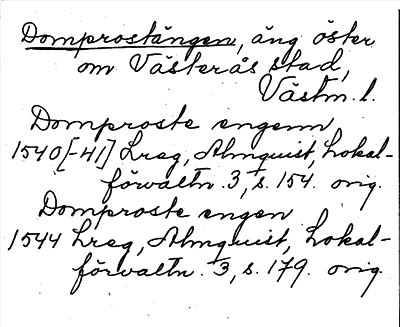 Domprostängen, äng öster
om Västerås stad,
Västm. l.
Domproste engenn
1540[-41] Lreg, Almquist, Lokal-
förvaltn. 3, s. 154. orig.
Domproste engen
1544 Lreg, Almquist, Lokal-
förvaltn. 3, s. 179. orig.